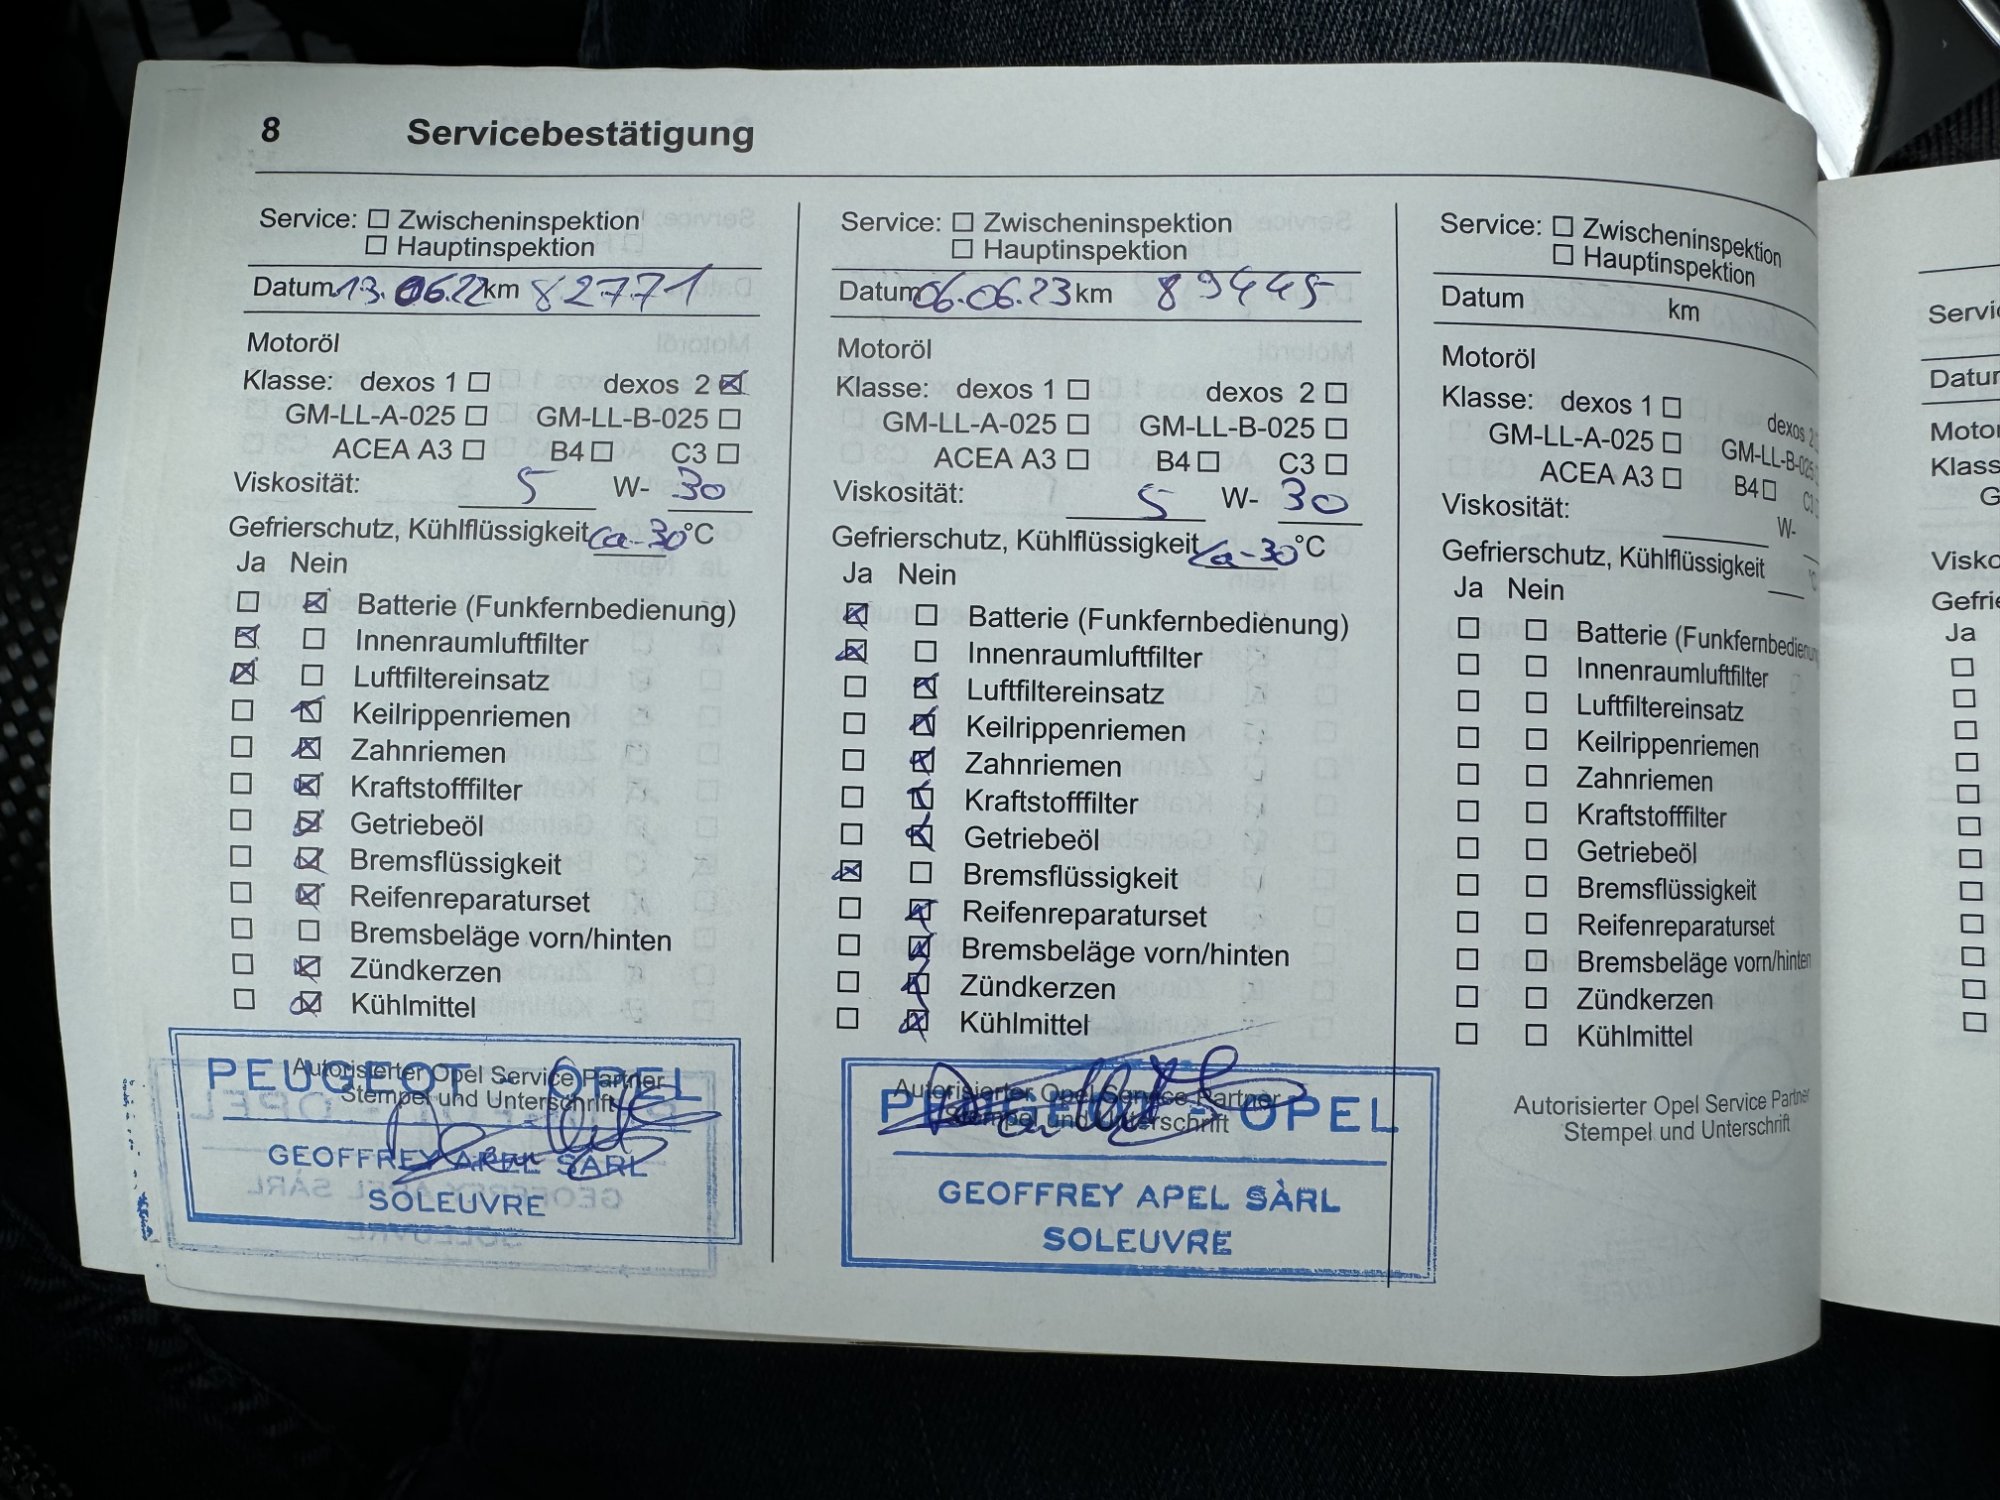 8 Servicebestätigung
Service: ☐ Zwischeninspektion
☐ Hauptinspektion
Datum 13.06.22 km 82771
Motoröl
Klasse: dexos 1 ☐ dexos 2 ☒
GM-LL-A-025 ☐ GM-LL-B-025 ☐
ACEA A3 ☐ B4 ☐ C3 ☐
Viskosität: 5 W- 30
Gefrierschutz, Kühlflüssigkeit ca -30 °C
Ja Nein
☐ ☒ Batterie (Funkfernbedienung)
☒ ☐ Innenraumluftfilter
☒ ☐ Luftfiltereinsatz
☐ ☒ Keilrippenriemen
☐ ☒ Zahnriemen
☐ ☒ Kraftstofffilter
☐ ☒ Getriebeöl
☐ ☒ Bremsflüssigkeit
☐ ☒ Reifenreparaturset
☐ ☐ Bremsbeläge vorn/hinten
☐ ☒ Zündkerzen
☐ ☒ Kühlmittel
Autorisierter Opel Service Partner
Stempel und Unterschrift
PEUGEOT - OPEL
GEOFFREY APEL SÀRL
SOLEUVRE
Service: ☐ Zwischeninspektion
☐ Hauptinspektion
Datum 06.06.23 km 89445
Motoröl
Klasse: dexos 1 ☐ dexos 2 ☐
GM-LL-A-025 ☐ GM-LL-B-025 ☐
ACEA A3 ☐ B4 ☐ C3 ☐
Viskosität: 5 W- 30
Gefrierschutz, Kühlflüssigkeit ca -30 °C
Ja Nein
☒ ☐ Batterie (Funkfernbedienung)
☒ ☐ Innenraumluftfilter
☐ ☒ Luftfiltereinsatz
☐ ☒ Keilrippenriemen
☐ ☒ Zahnriemen
☐ ☒ Kraftstofffilter
☐ ☒ Getriebeöl
☒ ☐ Bremsflüssigkeit
☐ ☒ Reifenreparaturset
☐ ☒ Bremsbeläge vorn/hinten
☐ ☒ Zündkerzen
☐ ☒ Kühlmittel
Autorisierter Opel Service Partner
Stempel und Unterschrift
PEUGEOT - OPEL
GEOFFREY APEL SÀRL
SOLEUVRE
Service: ☐ Zwischeninspektion
☐ Hauptinspektion
Datum km
Motoröl
Klasse: dexos 1 ☐ dexos 2
GM-LL-A-025 ☐ GM-LL-B-025
ACEA A3 ☐ B4 ☐ C3
Viskosität: W-
Gefrierschutz, Kühlflüssigkeit °C
Ja Nein
☐ ☐ Batterie (Funkfernbedienun
☐ ☐ Innenraumluftfilter
☐ ☐ Luftfiltereinsatz
☐ ☐ Keilrippenriemen
☐ ☐ Zahnriemen
☐ ☐ Kraftstofffilter
☐ ☐ Getriebeöl
☐ ☐ Bremsflüssigkeit
☐ ☐ Reifenreparaturset
☐ ☐ Bremsbeläge vorn/hinten
☐ ☐ Zündkerzen
☐ ☐ Kühlmittel
Autorisierter Opel Service Partner
Stempel und Unterschrift
Servic
Datur
Motor
Klass
G
Visko
Gefrie
Ja